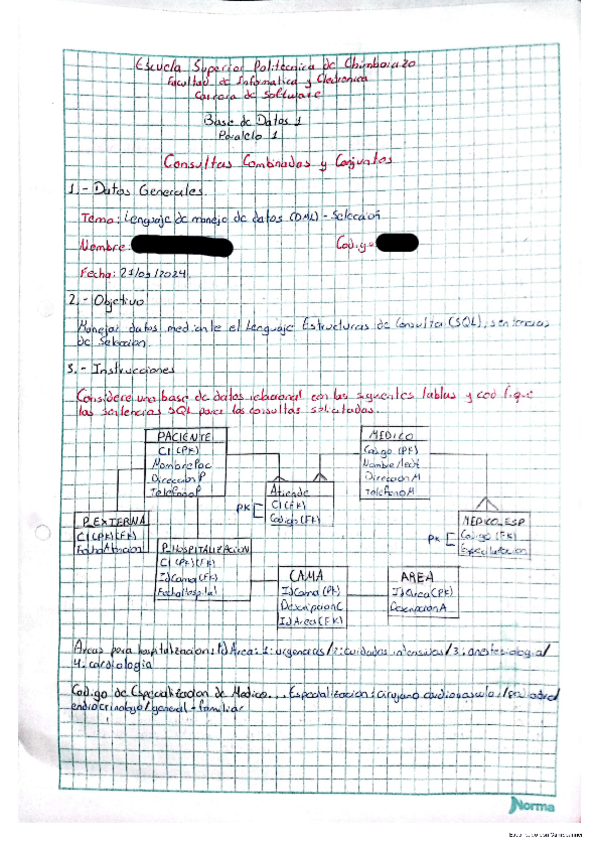 Escuela Superior Politecnica de Chimborazo
Facultad de Informatica y Electronica
Carrera de Software
Base de Datos 1
Paralelo 1
Consultas Combinadas y Conjuntos
1.- Datos Generales
Tema: Lenguaje de manejo de datos (DML) - Selección
Nombre:
Codigo
Fecha: 21/09/2024
2.- Objetivo
Manejar datos mediante el Lenguaje Estructuras de Consulta (SQL), sentencias
de Selección
3.- Instrucciones
Considere una base de datos relacional con las siguientes tablas y codifique
las sentencias SQL para las consultas solicitadas.
PACIENTE
CI (PK)
NombrePac
DireccionP
TelefonoP
MEDICO
Codigo (PK)
NombreMedi
DireccionM
TelefonoM
Atiende
PK
CI (FK)
Codigo (FK)
P_EXTERNA
CI (PK)(FK)
FechaAtencion
P_HOSPITALIZACION
CI (PK)(FK)
IdCama (FK)
FechaHospital
MEDICO_ESP
PK
Codigo (FK)
Especializacion
CAMA
IdCama (PK)
DescripcionC
IdArea (FK)
AREA
IdArea (PK)
DescripcionA
Areas para hospitalizacion: IdArea: 1: urgencias/2: cuidados intensivos/3: anestesiologia/
4. cardiologia
Codigo de Especializacion de Medico... Especializacion: cirujano cardiovascular/
endocrinologo/general - familiar
Norma